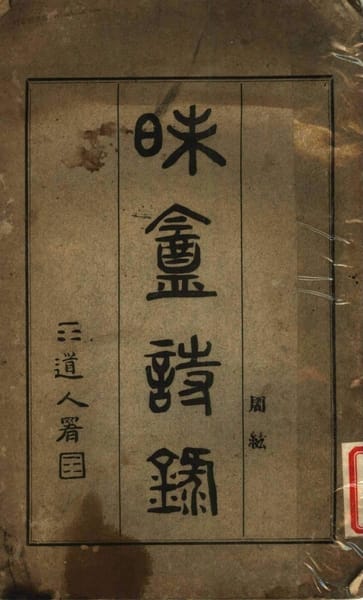 周紘
昧盦詩錄
道人署